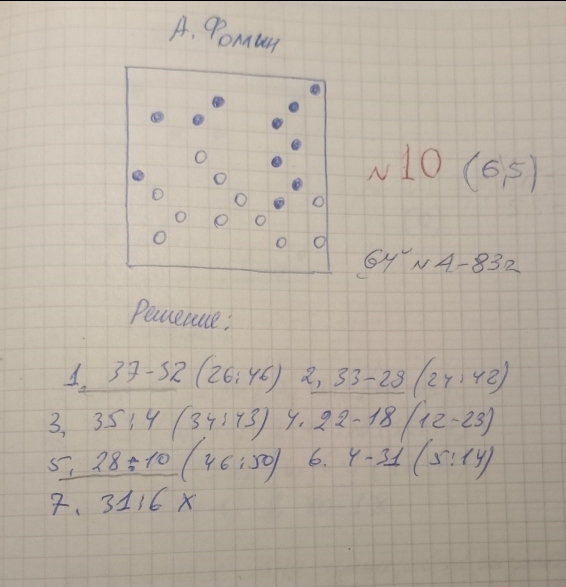 А. Фомин
№10 (6,5)
"64" №4-83г
Решение:
1. 37-32 (26:46) 2. 33-29 (24:42)
3. 35:4 (34:43) 4. 22-18 (12-23)
5. 28:10 (46:50) 6. 4-31 (5:14)
7. 31:6 X